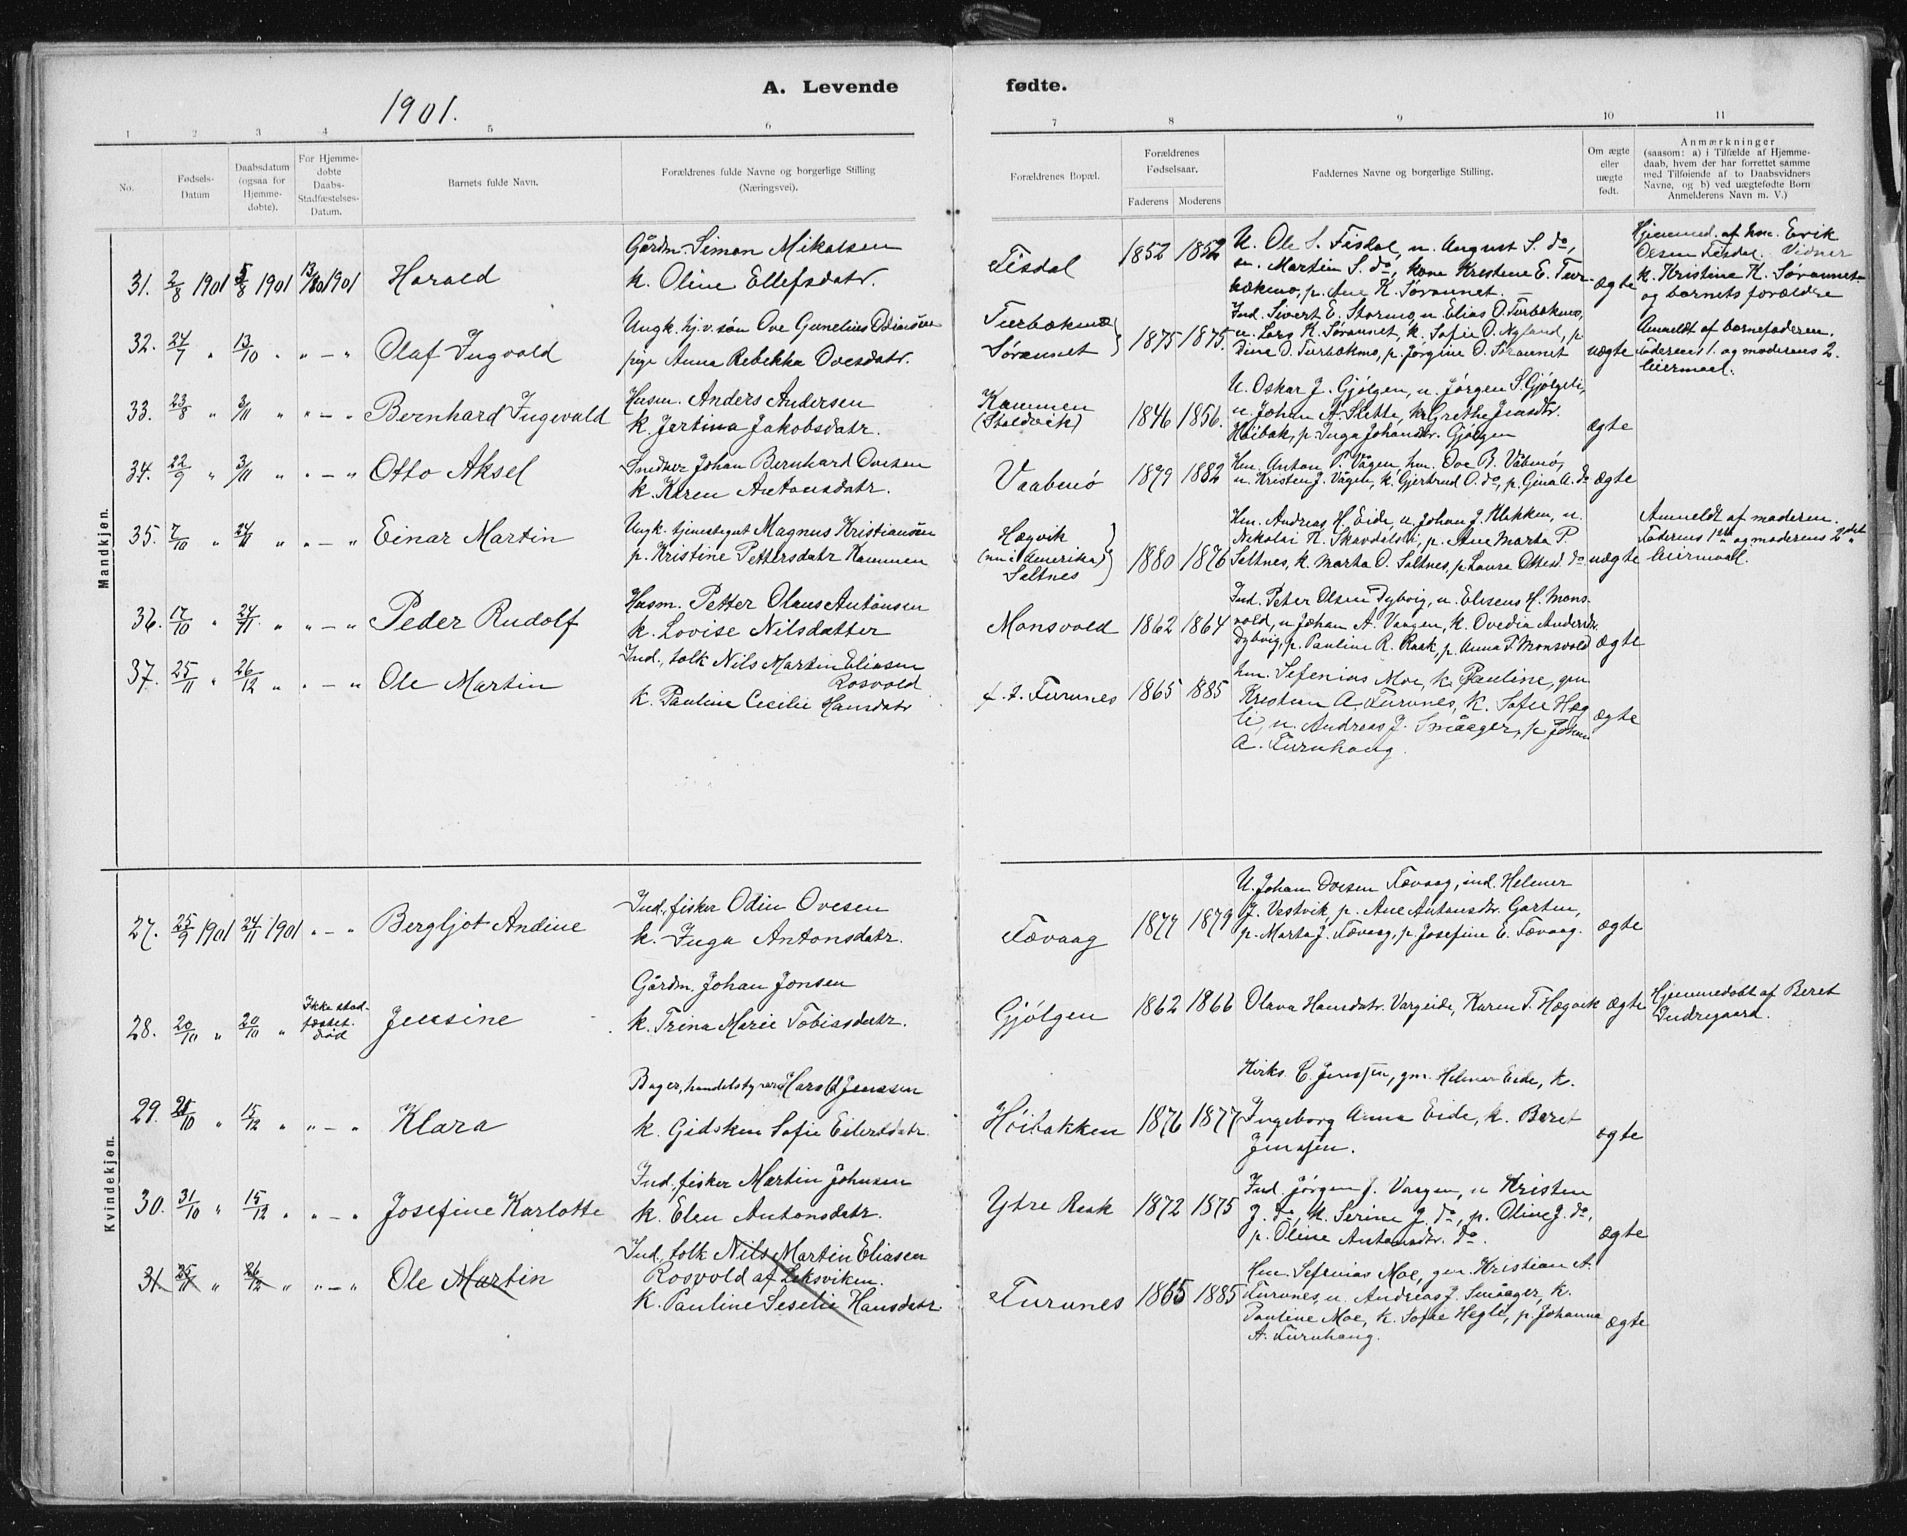 1901.
A. Levende fødte.
1 2 3 4 5 6 7 8 9 10 11
No.
Fødsels-Datum
Daabsdatum (ogsaa for Hjemme-døbte).
For Hjemme-døbte Daabs-Stadfæstelses-Datum.
Barnets fulde Navn.
Forældrenes fulde Navne og borgerlige Stilling (Næringsvei).
Forældrenes Bopæl.
Forældrenes Fødselsaar.
Faderens Moderens
Faddernes Navne og borgerlige Stilling.
Om ægte eller uægte født.
Anmærkninger
(saasom: a) i Tilfælde af Hjemme-
daab, hvem der har forrettet samme
med Tilføiende af to Daabsvidners
Navne, og b) ved uægtefødte Børn
Anmelderens Navn m. V.)
Mandkjøn.
31. 2/8 1901 5/8 1901 1901 Harald
Gårdm. Simon Mikalsen
k. Oline Ellefsdatr.
Tisdal 1852 1852
U. Ole S. Tisdal, u. August S. do,
Martin S. do, kone Kristine E. Tur-
bækmo, p. Ane K. Sørannet.
ægte
Hjemmed. af hm. Erik
Olsen Tisdal. Vidner
k. Kristina K. Sørannet
og barnets forældre
32. 24/7 " 13/10 " " - " Olaf Ingvald
Ungk. hj.v. søn Ove Gunelius Odinsen
pige Anna Rebekka Ovesdatr.
Turbækmo
Sørannet
1875 1875.
Ind. Sivert E. Stormo, u Elias O. Turbækmo,
u. Lars K. Sørannet, k. Sofie O. Nyland, p
Dina O. Turbækmo, p. Jørgine O. Sørannet
uægte
Anmeldt af barnefaderen.
Faderens 1. og moderens 2.
leiermaal.
33. 23/8 " 3/11 " " - " Bernhard Ingevald
Husm. Anders Andersen
k. Jertina Jakobsdatr.
Kammen
(Stoldvik)
1846 1856.
U. Oskar J. Gjølgen, u. Jørgen S. Gjølgeli,
u. Johan A. Slette, k. Grethe Jensdtr.
Høibak, p. Inga Johansdtr. Gjølgen
ægte
34. 22/9 " 3/11 " " - " Otto Aksel
Snedker Johan Bernhard Ovesen
k. Karen Antonsdatr.
Vaabenø 1879 1882
Hm. Anton P. Vågen, hm. Ove B. Våbenø,
u. Kristen J. Vågen, k. Gjertrud O. do, p. Gina A. do
ægte
35. 7/10 " 24/11 " " - " Einar Martin
Ungk. tjenestegut Magnus Kristiansen
p. Kristine Pettersdatr Kammen
Hægvik
(nu i Amerika)
Saltnes
1880 1876
Hm. Andreas H. Eide, u. Johan J. Klakken, u.
Nikolai K. Skavdalsli, p. Ane Marta P.
Saltnes, k. Marta O. Saltnes, p. Laura Ottesd. do
uægte
Anmeldt af moderen.
Faderens 1ste og moderens 2det
leiermaal.
36. 17/10 " 24/11 " " - " Peder Rudolf
Husm. Petter Olaus Antonsen
k. Lovise Nilsdatter
Monsvold 1862 1864
Ind. Peter Olsen Dybvig, u. Eliseus H. Mons-
vold, u Johan A. Vaagen, k. Ovedia Andersdr.
Dybvig, p. Pauline R. Raak, p. Anna P. Monsvold
ægte
37. 25/11 " 26/12 " " - " Ole Martin
Ind., tolk Nils Martin Eliasen
Rosvold
k. Pauline Cecilie Hansdatr
f. t. Furunes 1865 1885
hm. Sefenias Moe, k. Pauline, gm
Kristian A. Furunes, k. Sofie Heg-
li, u. Andreas J. Småeger, p. Johan
A. Furuhaug.
ægte
Kvindekjøn.
27. 25/9 1901 24/11 1901 " - " Bergljot Andine
Ind., fisker Odin Ovesen
k. Inga Antonsdatr.
Tævaag 1877 1879
U. Johan Ovesen Tævaag, ind. Helmer
J. Vestvik, p. Ane Antonsdtr. Garten,
p. Marta J. Tævaag, p. Josefine E. Tævaag.
ægte
28. 20/10 " 20/10 "
Ikke stad-
fæstet.
død
Jensine
Gårdm. Johan Jonsen
k. Trina Marie Tobiasdatr.
Gjølgen 1862 1866
Olava Hansdatr. Vargeide, Karen T. Hægvik
ægte
Hjemmedøbt af Beret
Indregaard.
29. 21/10 " 15/12 " " - " Klara
Bager, handelstyrer Harald Jenssen
k. Gidsken Sofie Eilertsdatr.
Høibakken 1876 1877
Kirks. C. Jenssen, gm. Helmer Eide, k.
Ingeborg Anna Eide, k. Beret
Jenssen.
ægte
30. 31/10 " 15/12 " " - " Josefine Karlotte
Ind., fisker Martin Johnsen
k. Elen Antonsdatr.
Ytre Raak 1872 1875
Ind. Jørgen J. Vaagen, u Kristen
J. do, k. Serine J. do, p. Oline J. do,
p. Oline Antonsdtr. do.
ægte
31. 25/11 " 26/12 " " - " Ole Martin
Ind., tolk Nils Martin Eliasen
Rosvold af Leksviken.
k. Pauline Seselie Hansdatr
Furunes 1865 1885
Hm. Sefenias Moe, gm. Kristian A.
Furunes, u. Andreas J. Småeger, k.
Pauline Moe, k. Sofie Hegli, p. Johanna
A. Furuhaug.
ægte